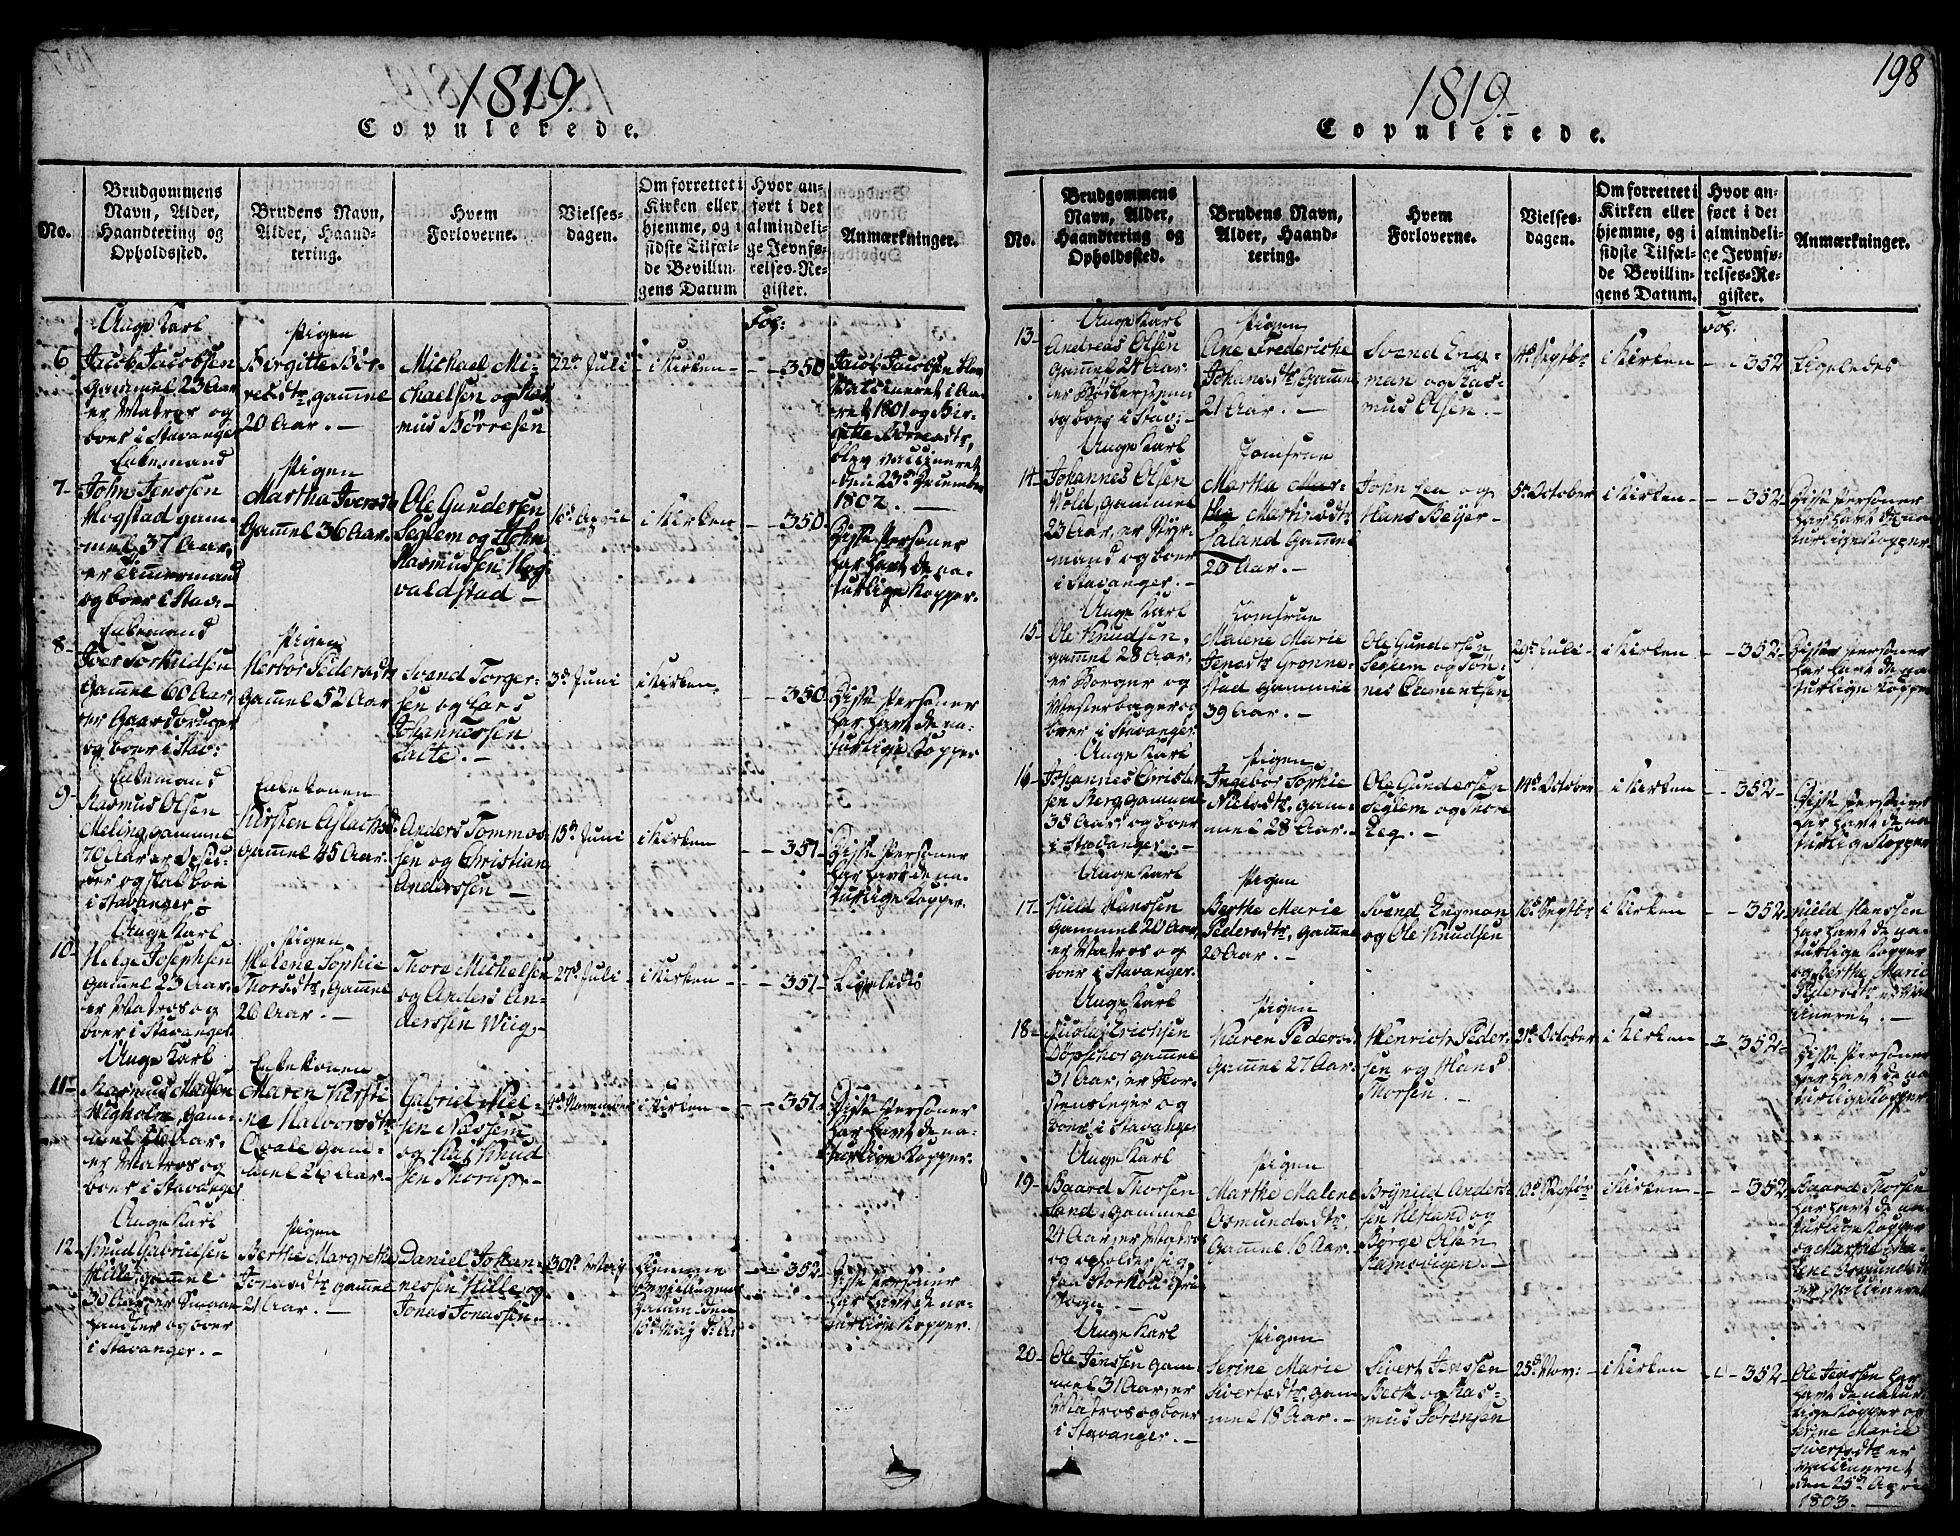 1819.
Copulerede.
No.
Brudgommens
Navn, Alder,
Haandtering og
Opholdssted.
Brudens Navn,
Alder, Haand-
tering.
Hvem
Forloverne.
Vielses-
dagen.
Om forrettet i
Kirken eller
hjemme, og i
sidste Tilfæl-
de Bevillin-
gens Datum
Hvor an-
ført i det
almindeli-
ge Jevnfø-
relses-Re-
gister.
Anmærkninger.
Fol:
6
Unge Karl
Jacob Jacobsen
gammel 23 Aar
er Matros og
boer i Stavanger
Pigen
Birgitte Bør-
resdtr, gamel
20 Aar. -
Michael Mi-
chaelsen og Ras
mus Børresen
22de Juli
i Kirken
350
Jacob Jacobsen blev
vaccineret i Aa-
ret 1801 og Bir-
gitte Børresdtr,
blev vaccineret
den 23de December
1802. -
7-
Enkemand
John Jenssen
Hogstad gam-
mel 37 Aar,
er Timmermand
og boer i Stav: -
Pigen
Martha Iversdtr
Gamel 36 Aar.
Ole Gundersen
Seglem og John
Rasmussen Hog-
valdstad -
16de April
i Kirken
350
Disse Personer
har havt de na-
turlige Kopper.
8-
Enkemand
Iver Torkildsen
Gamel 60 Aar,
er Gaardbruger
og boer i Stav:
Pigen
Herbor Pedersdtr
Gamel 52 Aar
Svend Torger-
sen og Lars
Johannessen
3de Juni
i Kirken
350
Disse Personer
har havt de na-
turlige Kopper
9-
Enkemand
Rasmus Olsen
Meling, gammel
70 Aar er
og skal boe
i Stavanger -
Enkekonen
Kirsten Aslachsdtr
Gamel 45 Aar.
Anders Tommes-
sen og Christian
Anderssen -
15de Juni
i Kirken
351-
Disse Personer
har havt de na-
turlige Kopper.
10-
Unge Karl
Helge Josephsen
gamel 23 Aar,
er Matros og
boer i Stavanger
Pigen
Helene Sophie
Thorsdtr, Gamel
26 Aar. -
Thore Michelsen
og Anders An-
derssen Wiig -
27de Juli
i Kirken
351-
Ligeledes
11-
Unge Karl
Rasmus Madsen
Vigholm, gam-
mel Aar,
er Matros og
boer i Stavanger
Enkekonen
Maren Kirsti-
ne Halvorsdtr
Qvale gam-
mel 26 Aar.
Gabriel Niel-
sen Næssem
og Kai Knud
sen Thorup -
4de November
i Kirken
351.
Disse Personer
har havt de na-
turlige Kopper.
12-
Unge Karl
Knud Gabrielsen
Hille, gammel
30 Aar, er
handler og boer
i Stavanger. -
Pigen
Berthe Margrethe
Jonasdtr gamel
21 Aar. -
Daniel Johan-
nessen Hille og
Jonas Jonassen. -
30te Maj
Hjemme
Bevillingens
Datum den
15de Maj d: A:
352
Disse Personer
har havt de na-
turlige Kopper.
198
1819.-
Copulerede.
No.
Brudgommens
Navn, Alder,
Haandtering og
Opholdssted.
Brudens Navn,
Alder, Haand-
tering.
Hvem
Forloverne.
Vielses-
dagen.
Om forrettet i
Kirken eller
hjemme, og i
sidste Tilfæl-
de Bevillin-
gens Datum.
Hvor an-
ført i det
almindeli-
ge Jevnfø-
relses-Re-
gister.
Anmærkninger.
Fol:
13-
Unge Karl
Andreas Olsen
Gammel 24 Aar
er Bødkersvend
og boer i Stav: -
Pigen
Ane Fredericke
Johansdtr Gamel
21 Aar. -
Svend Eng-
man og Ras-
mus Olsen. -
14de Septbr
i Kirken
352
Ligeledes
14-
Unge Karl
Johannes Olsen
Vold, gammel
23 Aar, er Styr-
mand og boer
i Stavanger. -
Jomfrue
Martha Mar-
tha Martinsdtr
Saland Gamel
20 Aar. -
John Lea og
Hans Beyer -
5te October
i Kirken
352
Disse Personer
har havt de na-
turlige Kopper.
15-
Unge Karl
Ole Knudsen,
gammel 28 Aar,
er Borger og
Mesterbager og
boer i Stavanger.
Jomfrue
Malene Marie
Jensdtr Grønne-
stad gammel
39 Aar. -
Ole Gundersen
Seglem og Tøn-
nes Clementsen
29de Juli
i Kirken
352
Disse Personer
har havt de na-
turlige Kopper
16-
Unge Karl
Johannes Christen
sen Berg gammel
35 Aar, og boer
i Stavanger. -
Pigen
Ingebor Sophie
Nielsdtr, gam-
mel 28 Aar. -
Ole Gundersen
Seglem og Thore
Eeg. -
14de October
i Kirken
352-
Disse Personer
har havt de na-
turlige Kopper
17-
Unge Karl
Nield Hanssen
gammel 20 Aar,
er Matros og
boer i Stavanger.
Pigen
Berthe Marie
Pedersdtr, gamel
20 Aar. -
Svend Engman
og Ole Knudsen
16de Septbr
i Kirken
352
Nield Hanssen
har havt de na-
turlige Kopper
og Berthe Marie
Pedersdtr er vac-
cineret. -
18-
Unge Karl
Nicolai Erichsen
Døpschor gamel
31 Aar, er Skor-
steensfeier og
boer i Stavanger
Pigen
Karen Peders-
Gamel 27 Aar.
Henrich Peder-
sen og Hans
Thorsen. -
21de October
i Kirken
352
Disse Personer
har havt de na-
turlige Kopper.
19-
Unge Karl
Baard Thorsen
Sand, gammel
24 Aar, er Matros
og opholder sig
paa
Sogn -
Pigen
Marthe Malene
Osmundsdtr,
Gamel 16 Aar.
Brynild Anders-
sen Hetland og
Børge Olsen
Ramsvigen. -
10de Septbr
i Kirken
352
Baard Thorsen
har havt de na-
turlige Kopper
og Marthe Ma-
lene Osmundsdtr
er vaccineret
20-
Unge Karl
Ole Jenssen gam-
mel 31 Aar, er
Matros og boer
i Stavanger. -
Pigen
Serine Marie
Sivertsdtr, gam-
mel 18 Aar. -
Sivert Jenssen
Beck og Ras-
mus Sørensen
25de Nov:
i Kirken
352
Ole Jenssen har
havt de natur-
lige Kopper og
Serine Marie
Sivertsdtr er
vaccineret
den 25de April
1803. -